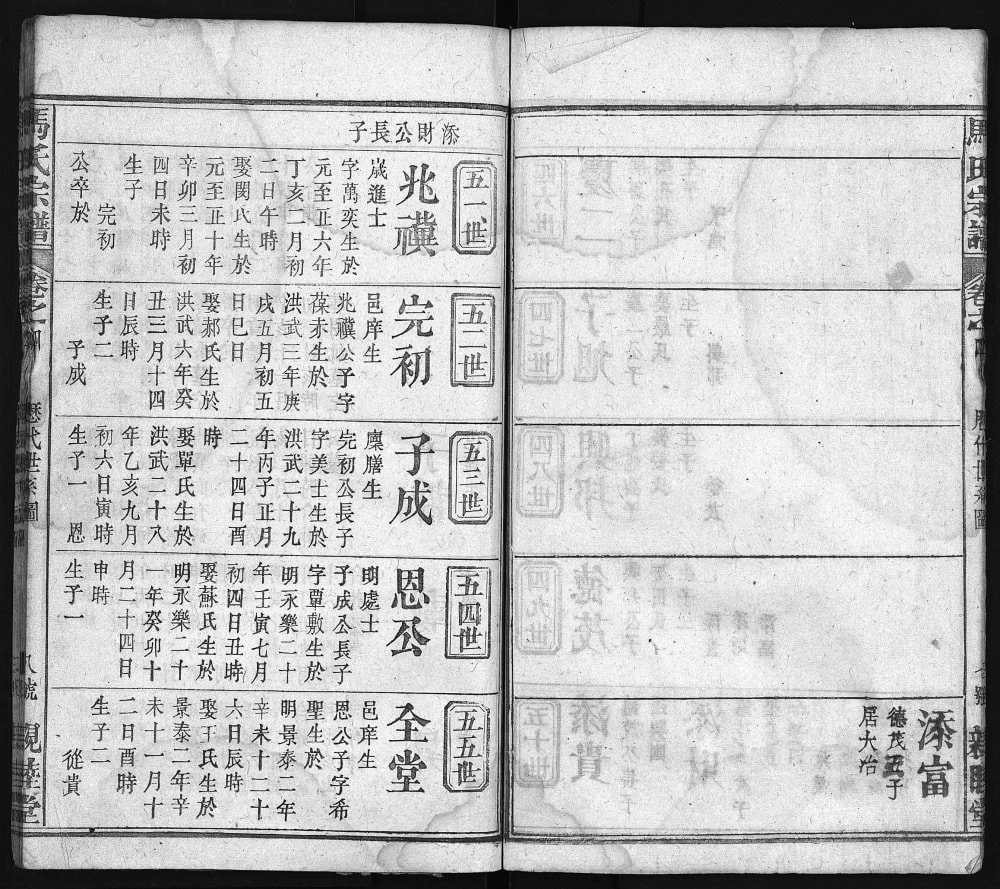 馬氏宗譜
卷之四
歷代世系圖
親睦堂
添富
德茂五子
居大冶
添財公長子
五一世
兆禥
歲進士
字萬奕生於
元至正六年
丁亥二月初
二日午時
娶閔氏生於
元至正十年
辛卯三月初
四日未時
生子
完初
公卒於
五二世
完初
邑庠生
兆禥公子字
葆赤生於
洪武三年庚
戌五月初五
日巳日
娶郝氏生於
洪武六年癸
丑三月十四
日辰時
生子二
子成
五三世
子成
廩膳生
完初公長子
字美士生於
洪武二十九
年丙子正月
二十四日酉
時
娶單氏生於
洪武二十八
年乙亥九月
初六日寅時
生子一
恩
五四世
恩公
明處士
子成公長子
字覃敷生於
明永樂二十
年壬寅七月
初四日丑時
娶蘇氏生於
明永樂二十
一年癸卯十
月二十四日
申時
生子一
五五世
全堂
邑庠生
恩公子字希
聖生於
明景泰二年
辛未十二十
六日辰時
娶王氏生於
景泰二年辛
未十一月十
二日酉時
生子二
從貴
馬氏宗譜
卷之四
歷代世系圖
八號
親睦堂